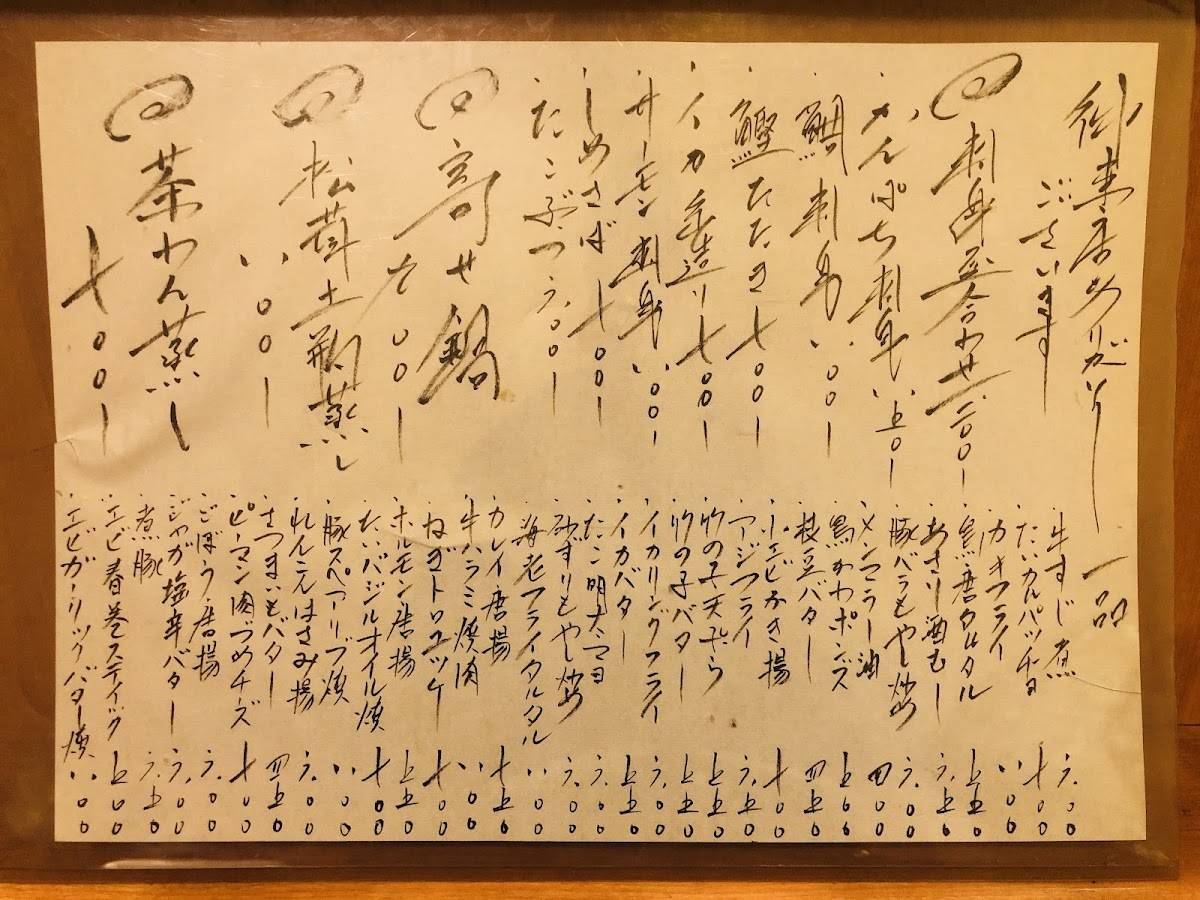 御来店ありがとう
ございます
刺身盛合わせ 一二〇〇
・かんぱち刺身 八五〇
・鯛刺身 八〇〇
・鰹たたき 七〇〇
・イカ姿造り 七〇〇
・サーモン刺身 八〇〇
・しめさば 七〇〇
・たこぶつ 六〇〇
寄せ鍋
九〇〇
松茸土瓶蒸し
八〇〇
茶わん蒸し
七〇〇
一品
・牛すじ煮 六〇〇
・たいカルパッチョ 七〇〇
・カキフライ 八〇〇
・鳥唐タルタル 五五〇
・あさり酒むし 六五〇
・豚バラもやし炒め 六〇〇
・メンマラー油 四〇〇
・鳥かわポンズ 五〇〇
・枝豆バター 四五〇
・小エビかき揚 七〇〇
・アジフライ 六五〇
・竹の子天ぷら 五五〇
・竹の子バター 五五〇
・イカリングフライ 六〇〇
・イカバター 五五〇
・たこ明太マヨ 六〇〇
・砂ずりもやし炒め 六〇〇
・海老フライタルタル 八〇〇
・カレイ唐揚 七五〇
・牛ハラミ焼肉 八〇〇
・ねぎトロユッケ 七〇〇
・ホルモン唐揚 五五〇
・たいバジルオイル焼 七〇〇
・豚スペアーリブ焼 八〇〇
・れんこんはさみ揚 六〇〇
・さつまいもバター 四五〇
・ピーマン肉づめチーズ 七〇〇
・ごぼう唐揚 六〇〇
・ジャガ塩辛バター 六〇〇
・煮豚 六五〇
・エビ春巻スティック 五〇〇
・エビガーリックバター焼 八〇〇